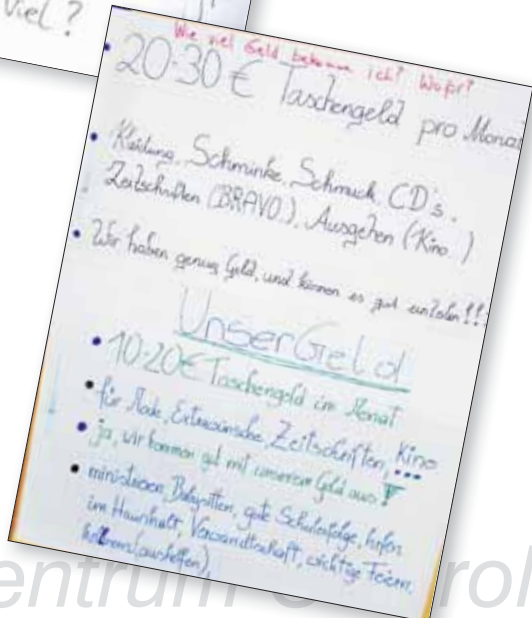 viel?
Wie viel Geld bekomme ich? Wofür?
20-30 € Taschengeld pro Monat
Kleidung, Schminke, Schmuck, CD's,
Zeitschriften (BRAVO..), Ausgehen (Kino..)
Wir haben genug Geld, und können es gut einteilen!!!
Unser Geld
10-20€ Taschengeld im Monat
für Mode, Extrawünsche, Zeitschriften, Kino
ja, wir kommen gut mit unserem Geld aus!
ministrieren, Babysitten, gute Schulerfolge, helfen
im Haushalt, Verwandtschaft, wichtige Feiern,
(aushelfen)
entrum
rol